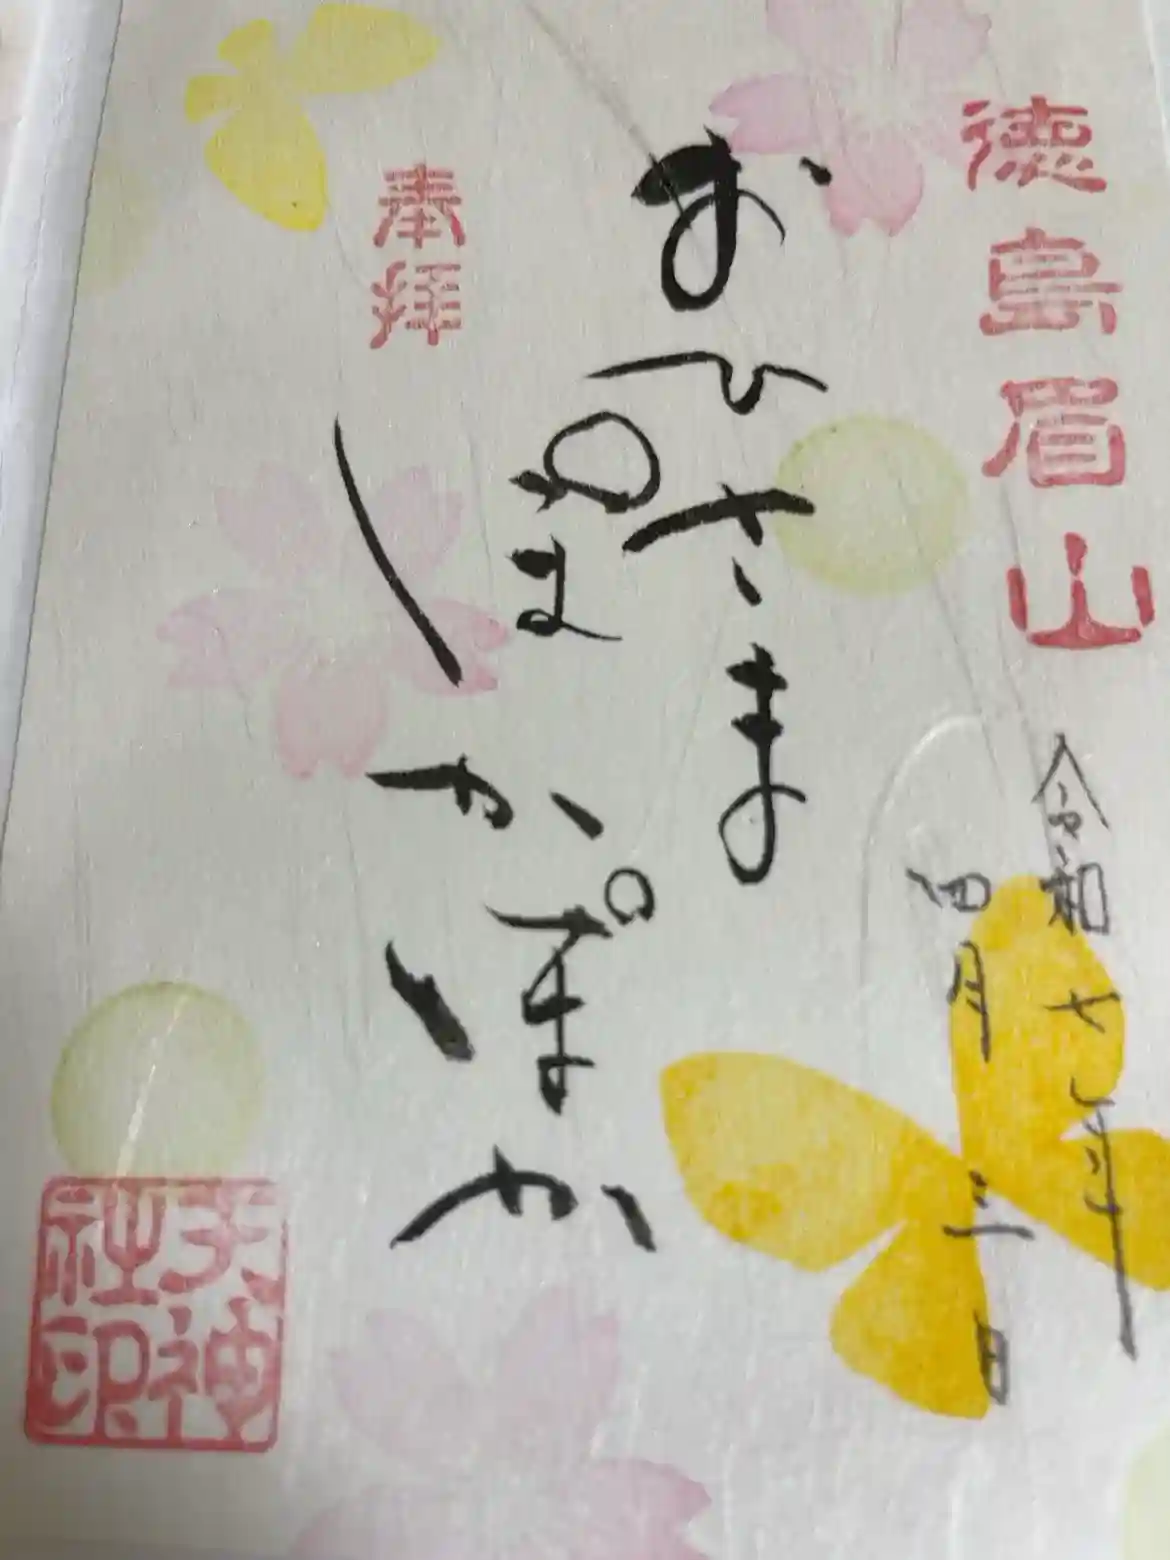 徳島眉山
令和七年
四月三日
おひさま
ぽかぽか
奉拝
天神
社印